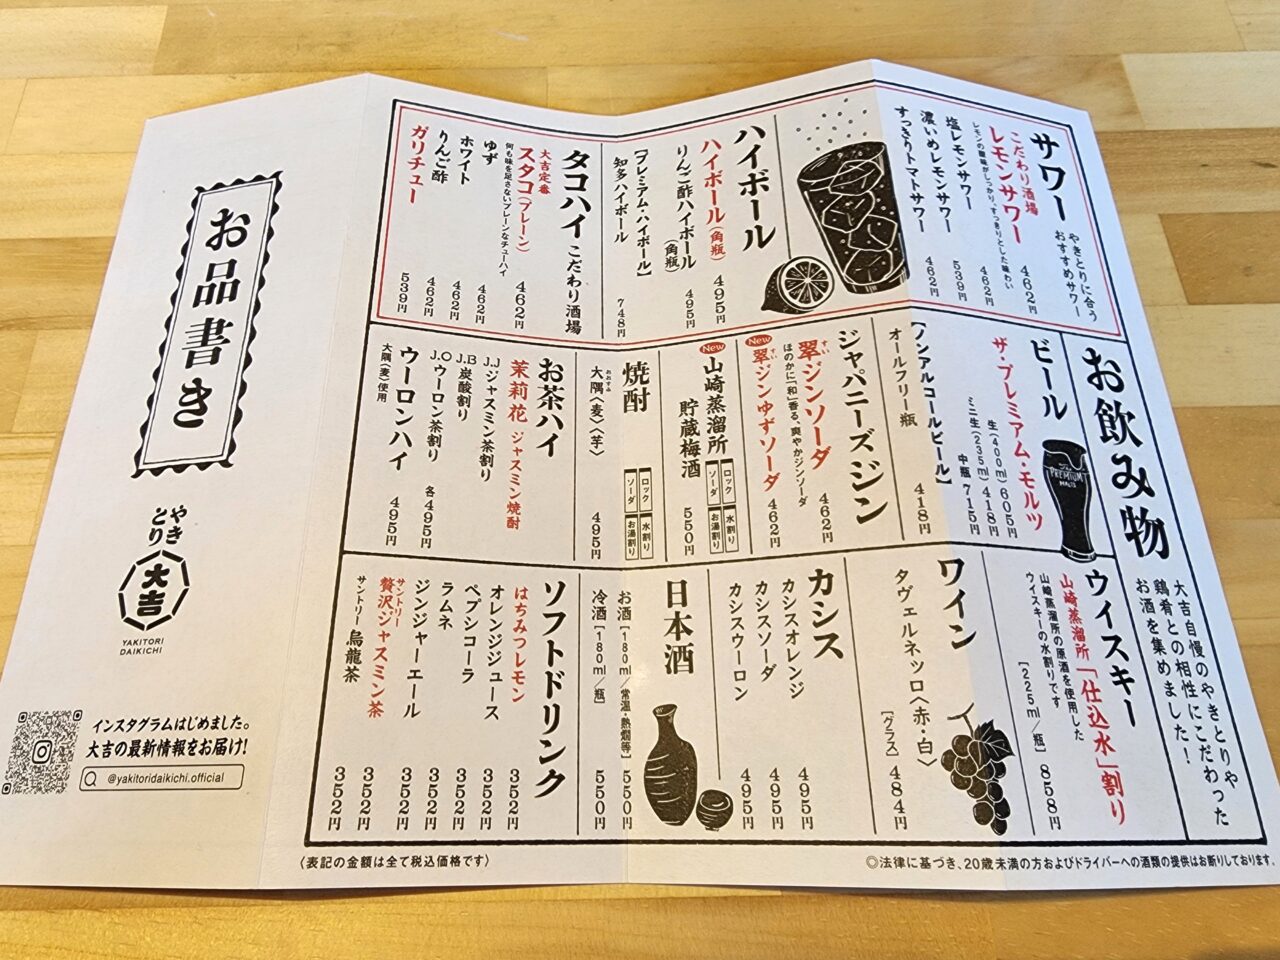 お飲み物
大吉自慢のやきとりや
鶏肴との相性にこだわった
お酒を集めました！
サワー
やきとりに合う
おすすめサワー
こだわり酒場
レモンサワー 462円
レモンの酸味がしっかり。すっきりとした味わい
塩レモンサワー 462円
濃いめレモンサワー 539円
すっきりトマトサワー 462円
ハイボール
ハイボール（角瓶） 495円
りんご酢ハイボール（角瓶） 495円
【プレミアム・ハイボール】
知多ハイボール 748円
タコハイ こだわり酒場
大吉定番
スタコ（プレーン） 462円
何も味を足さないプレーンなチューハイ
ゆず 462円
ホワイト 462円
りんご酢 462円
ガリチュー 539円
ビール
ザ・プレミアム・モルツ
生（400ml） 605円
ミニ生（235ml） 418円
中瓶 715円
【ノンアルコールビール】
オールフリー瓶 418円
PREMIUM
MALT'S
ジャパニーズジン
翠ジンソーダ 462円
すい
ほのかに「和」香る、爽やかジンソーダ
New
翠ジンゆずソーダ 462円
すい
New
山崎蒸溜所
貯蔵梅酒 550円
ロック
水割り
ソーダ
お湯割り
焼酎
大隅〈麦〉〈芋〉 495円
おおすみ
ロック
水割り
ソーダ
お湯割り
お茶ハイ
茉莉花 ジャスミン焼酎
J.Jジャスミン茶割り
J.B炭酸割り
J.Oウーロン茶割り
各495円
ウーロンハイ 495円
大隅〈麦〉使用
ウイスキー
山崎蒸溜所「仕込水」割り
山崎蒸溜所の原酒を使用した
ウイスキーの水割りです
［225ml／瓶］ 858円
ワイン
タヴェルネッロ〈赤・白〉
［グラス］ 484円
カシス
カシスオレンジ 495円
カシスソーダ 495円
カシスウーロン 495円
日本酒
お酒［180ml／常温・熱燗等］ 550円
冷酒［180ml／瓶］ 550円
ソフトドリンク
はちみつレモン 352円
オレンジジュース 352円
ペプシコーラ 352円
ラムネ 352円
ジンジャーエール 352円
サントリー
贅沢ジャスミン茶 352円
サントリー 烏龍茶 352円
〈表記の金額は全て税込価格です〉
◎法律に基づき、20歳未満の方およびドライバーへの酒類の提供はお断りしております。
お品書き
やきとり
大吉
YAKITORI
DAIKICHI
インスタグラムはじめました。
大吉の最新情報をお届け！
@yakitoridaikichi.official